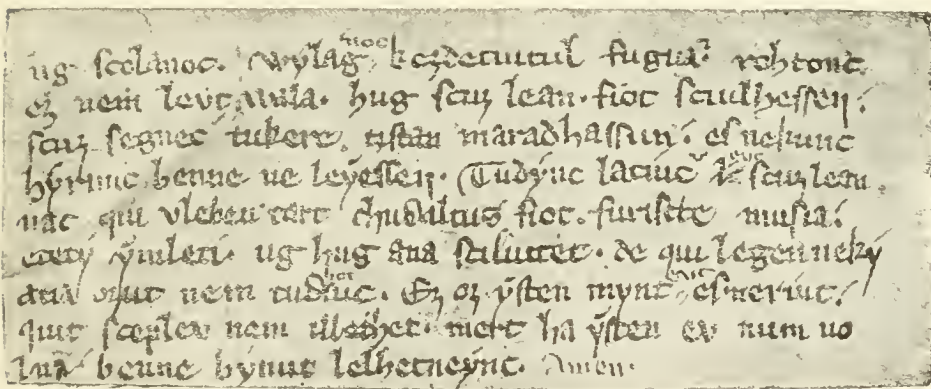 ug scolanoc. Wylagnoc kezdetuitul fugua. rohtonc
ez nem levt vala. hug scuz lean. fiot sciulhessen.
scuz segnec tukere. tistan maradhassun. es nekunc
hyrunc benne ne leyessen. Tudyuc latiuc evt scuz lean
nac qui vleben tart chudaltus fiot. furiscte musia.
etety ymleti. ug hug ana sciluttet. de qui legen neky
atia ozut nem tudhotiuc. Ez oz ysten mynt evt esmeriuc.
quit sceplev nem illethet. mert ha ysten ev num uo
lna benne bynut lelhetneync. Amen.